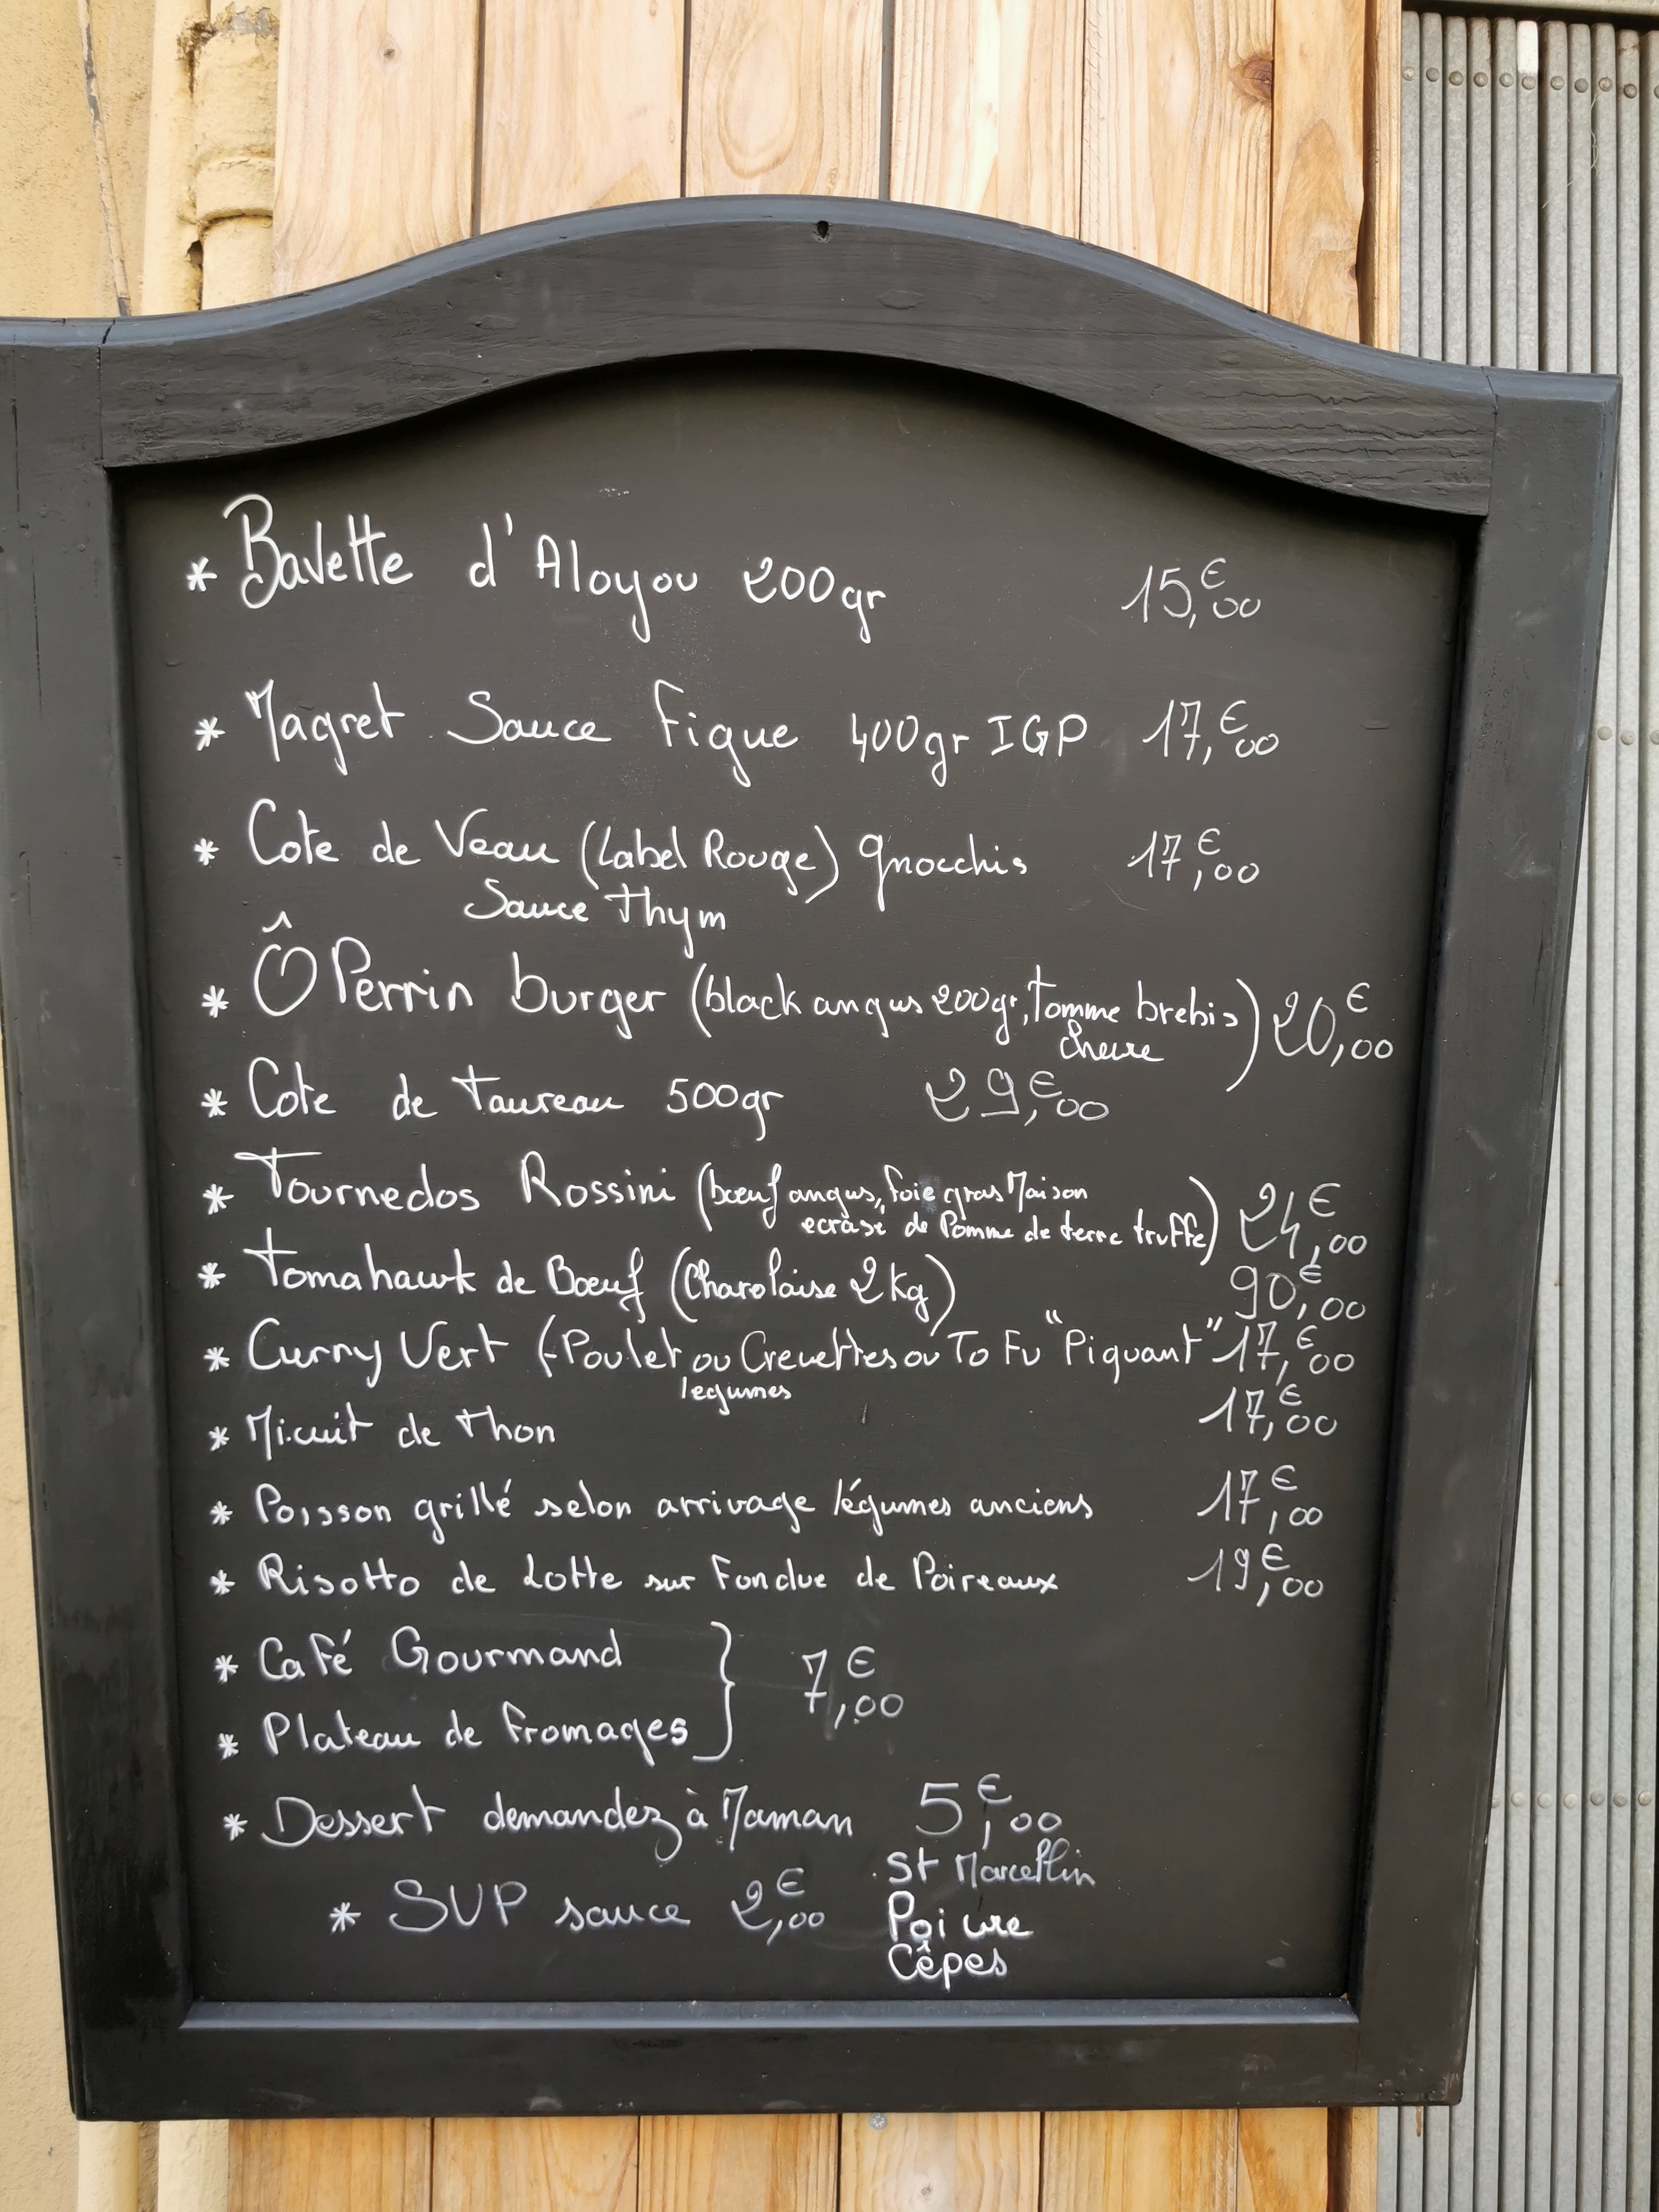 * Bavette d'Aloyou 200gr 15,€00
* Magret Sauce Figue 400gr IGP 17,€00
* Cote de Veau (Label Rouge) gnocchis 17,€00
Sauce Thym
* Ô Perrin burger (black angus 200gr, Tomme brebis) 20,€00
chevre
* Cote de Taureau 500gr 29,€00
* Tournedos Rossini (bœuf angus, foie gras Maison
ecrasé de Pomme de terre truffe) 24,€00
* Tomahawk de Bœuf (Charolaise 2kg) 90,€00
* Curry Vert (Poulet ou Crevettes ou To Fu "Piquant" 17,€00
legumes
* Micuit de Thon 17,€00
* Poisson grillé selon arrivage légumes anciens 17,€00
* Risotto de Lotte sur Fondue de Poireaux 19,€00
* Café Gourmand } 7,€00
* Plateau de Fromages
* Dessert demandez à Maman 5,€00
St Marcellin
* SUP sauce 2,€00 Poivre
Cêpes